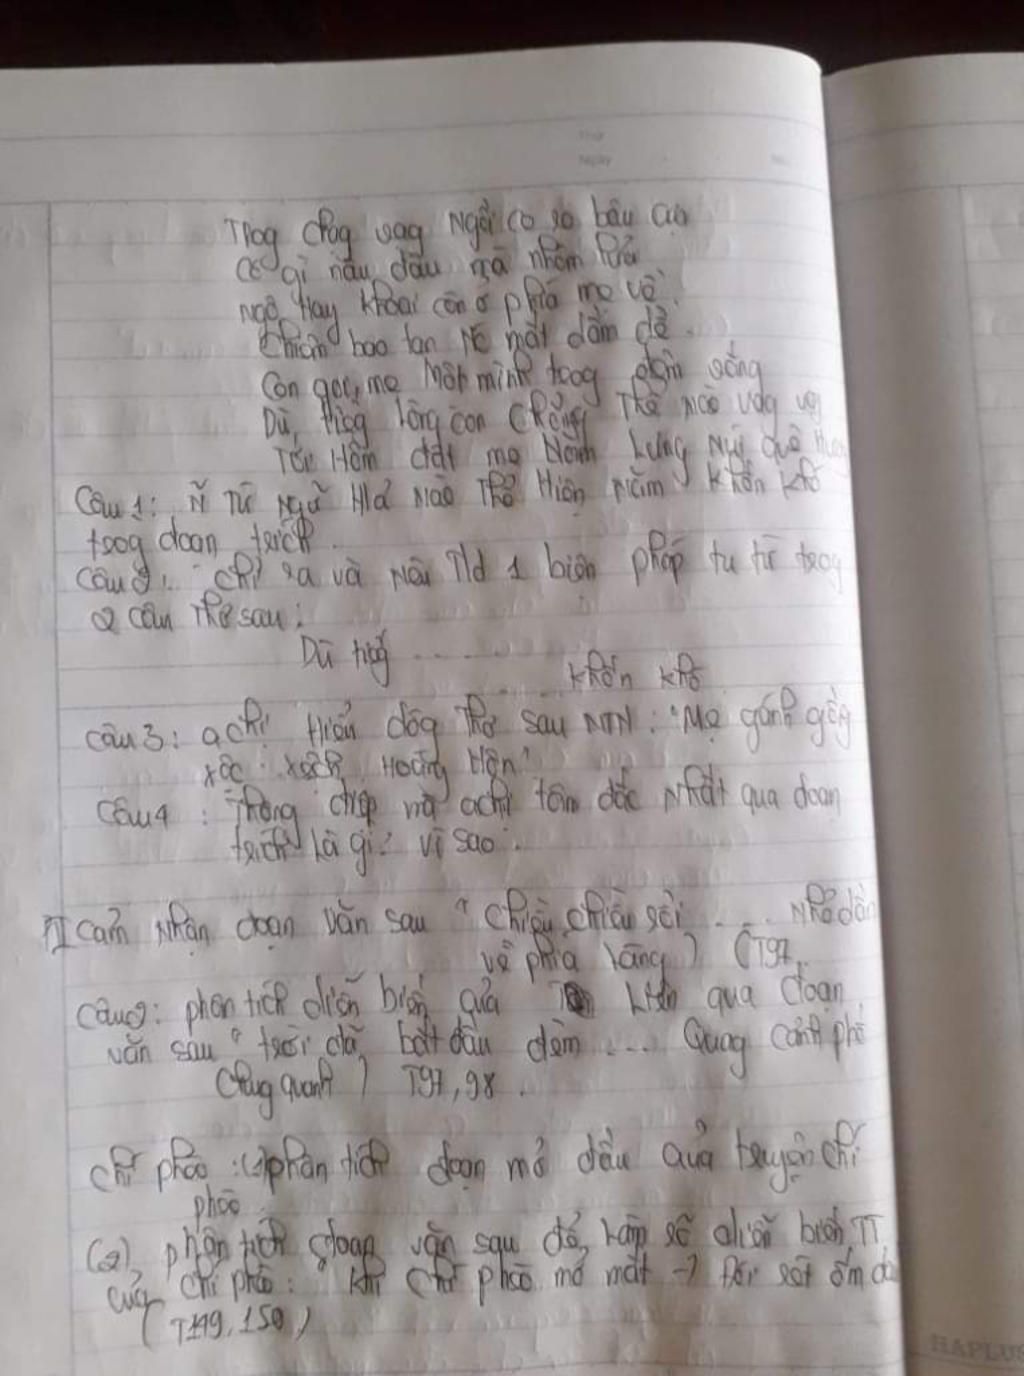 Thứ
Ngày
Trog chog vag Ngồi co ro bậu cửa
Có gì nấu đâu mà nhóm lửa
Ngô Hay khoai còn ở phía mẹ về
Chiêm bao tan Nc mắt dầm dề
Con gọi mẹ Một mình trog đêm vắng
Dù, tiếg lòng con Chẳng Thể Nào vag vọg
Tới Hồn đất mẹ Nằm Lưng Núi quê Hươg
Câu 1: N̄ Từ Ngữ H/ả Nào Thể Hiện Năm khốn khó
trog đoạn trích.
Câu 2: Chỉ ra và Nêu T/d 1 biện pháp tu từ trog
2 câu Thơ sau:
Dù tiếg ......
...... khốn khó
Câu 3: achị Hiểu dòg Thơ sau NTN: "Mẹ gánh gồng
xộc xệch Hoàng Hôn"
Câu 4 : Thông điệp mà achị tâm đắc Nhất qua đoạn
trích là gì? vì sao.
II Cảm Nhận đoạn Văn sau "Chiều, chiều rồi ...... Nhỏ dần
về phía làng" (T97,
Câu 2: phân tích diễn biến của Liên qua đoạn
văn sau "trời đã bắt đầu đêm .... Quang cảnh phố
Chug quanh" T97, 98.
Chí phèo :(1) phân tích đoạn mở đầu của truyện Chí
phèo.
(2) phân tích đoạn văn sau để làm rõ diễn biến TT
của Chí phèo: khi Chí phèo mở mắt -> đói rét ốm đau
(T149, 150)
HAPLUS